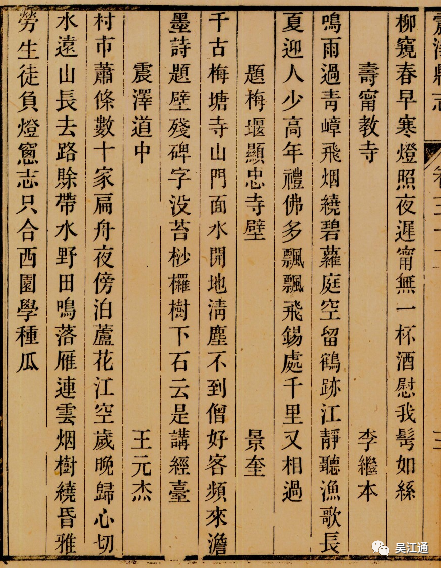 震澤縣志
卷三十二
柳窺春早寒燈照夜遲甯無一杯酒慰我髩如絲
壽甯教寺 李繼本
鳴雨過青嶂飛烟繞碧蘿庭空留鶴跡江靜聽漁歌長
夏迎人少高年禮佛多飄飄飛錫處千里又相過
題梅堰顯忠寺壁 景奎
千古梅塘寺山門面水開地淸塵不到僧好客頻來澹
墨詩題壁殘碑字没苔桫欏樹下石云是講經臺
震澤道中 王元杰
村市蕭條數十家扁舟夜傍泊蘆花江空歲晚歸心切
水遠山長去路賖帶水野田鳴落雁連雲烟樹繞昏雅
勞生徒負燈窻志只合西園學種瓜
吴江通